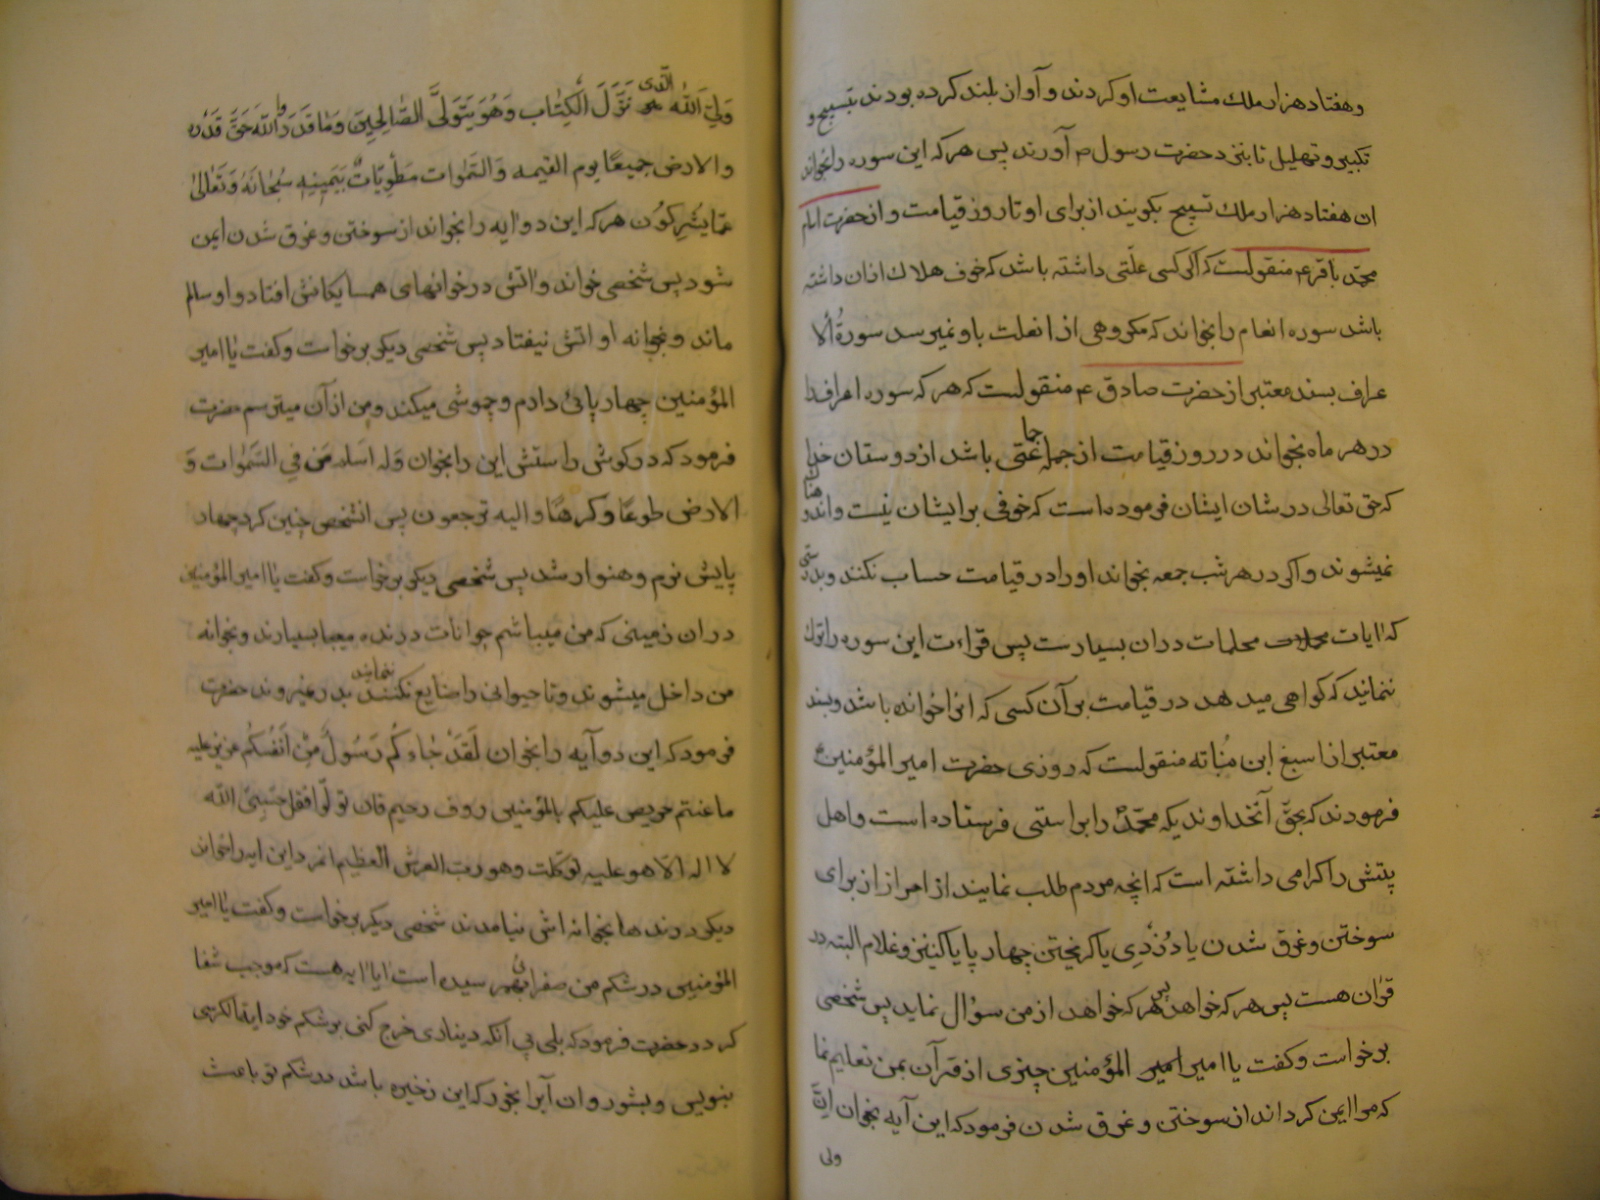 وهفتاد هزار ملك مشایعت او کردند و آواز بلند کرده بودند بتسبیح و
تکبیر و تهلیل تا بنزد حضرت رسول ص آوردند پس هر که این سوره را بخواند
ان هفتاد هزار ملك تسبیح بکویند از برای او تا روز قیامت و از حضرت امام
محمّد باقر ع منقولست که اکر کسی علّتی داشته باشد که خوف هلاك ازان داشته
باشد سوره انعام را بخواند که مکروهی از انعلت باو نمیرسد سورةُ الا
عراف بسند معتبر از حضرت صادق ع منقولست که هر که سوره اعراف را
در هر ماه بخواند در روز قیامت از جماعتی باشد از دوستان خدا
که حق تعالی در شان ایشان فرموده است که خوفی بر ایشان نیست و اندوهناك
نمیشوند و اکر در هر شب جمعه بخواند او را در قیامت حساب نکنند و بدرستی
که ایات محکمات دران بسیارست پس قراءت این سوره را ترك
ننمایند که کواهی میدهد در قیامت بر آن کسی که انرا خوانده باشد و بسند
معتبر از اسبغ ابن نُباته منقولست که روزی حضرت امیر المؤمنین ع
فرمودند که بحقّ آنخداوندیکه محمّدؐ را براستی فرستاده است و اهل
بیتش را کرامی داشته است که انچه مردم طلب نمایند از احراز از برای
سوختن و غرق شدن یا دُزدِی یا کریختن چهار پا یا کنیز و غلام البته در
قرٰان هست پس هر که خواهد از من سؤال نماید پس شخصی
برخواست و کفت یا امیر المؤمنین چیزی از قرآن بمن تعلیم نما
که مرا ایمن کرداند از سوختن و غرق شدن فرمود که این آیه بخوان اِنَّ
ولی
وَلِیَّ اللّٰه الّذی نَزَّلَ الْکِتٰابَ وَهُوَ یَتَوَلَّی الصّٰالِحِینَ وَمٰا قَدَرُوا اللّٰهَ حَقَّ قَدْرِه
والارض جمیعًا یوم القیمه وَالسَّمٰوات مَطْوِیّٰاتٌ بِیَمِینِهِ سُبْحٰانَهُ وَتَعٰالیٰ
عمّا یُشْرِکُون هر که این دو ایه را بخواند از سوختن و غرق شدن ایمن
شود پس شخصی خواند و اتش در خوانهای همسایکانش افتاد و او سالم
ماند و بخانه او اتش نیفتاد پس شخصی دیکر برخواست و کفت یٰا امیر
المؤمنین چهار پائی دارم و چموشی میکند و من از آن میترسم حضرت
فرمود که در کوش راستش این را بخوان وَله اَسلم مَن فِی السَّمٰوات وَ
الارض طوعًا وکرهًا والیه ترجعون پس انشخص چنین کرد چهار
پایش نرم و هنوار شد پس شخصی دیکر برخواست و کفت یٰا امیر المؤمنین
دران زمینی که من میباشم جوانات درنده میباسیارند و بخانه
من داخل میشوند و تا حیوانی را ضایع نکنند ننمایند بدر نمیروند حضرت
فرمود که این دو آیه را بخوان لَقَدْ جٰاءَکُم رَسُولٌ مِنْ اَنْفُسِکُم عزیز علیه
ما عنتم حریص علیکم بالمؤمنین روف رحیم فان تولّوا فقل حَسْبِیَ اللّه
لا اله الّا هو علیه توکّلت وهو رب العرش العظیم انمرد این ایه را خواند
دیکر درندها بخانه اش نیامدند شخصی دیکر برخواست و کفت یٰا امیر
المؤمنین در شکم من صفرا بهمرسیده است ایا ایه هست که موجب شفا
کردد حضرت فرمود که بلی بی انکه دیناری خرج کنی بر شکم خود ایة الکرسی
بنویس و بشور و ان آبرا بخور که این ذخیره باشد در شکم تو باعث